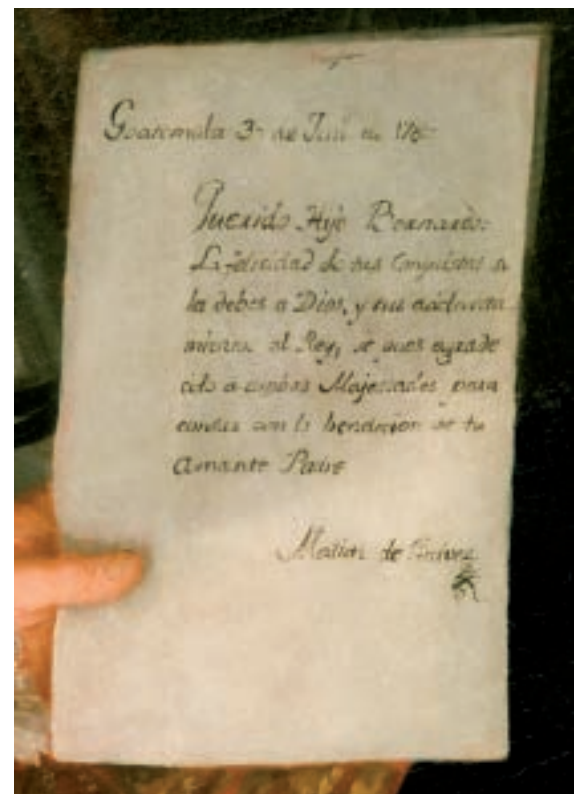 Guatemala 3 de de
Querido Hijo Bernardo:
La felicidad de tus Conquistas
la debes a Dios, y sus
al Rey, se pues agrade
cido a ambas Majestades para
contar con la bendicion de tu
Amante Padre
Matias de Galvez